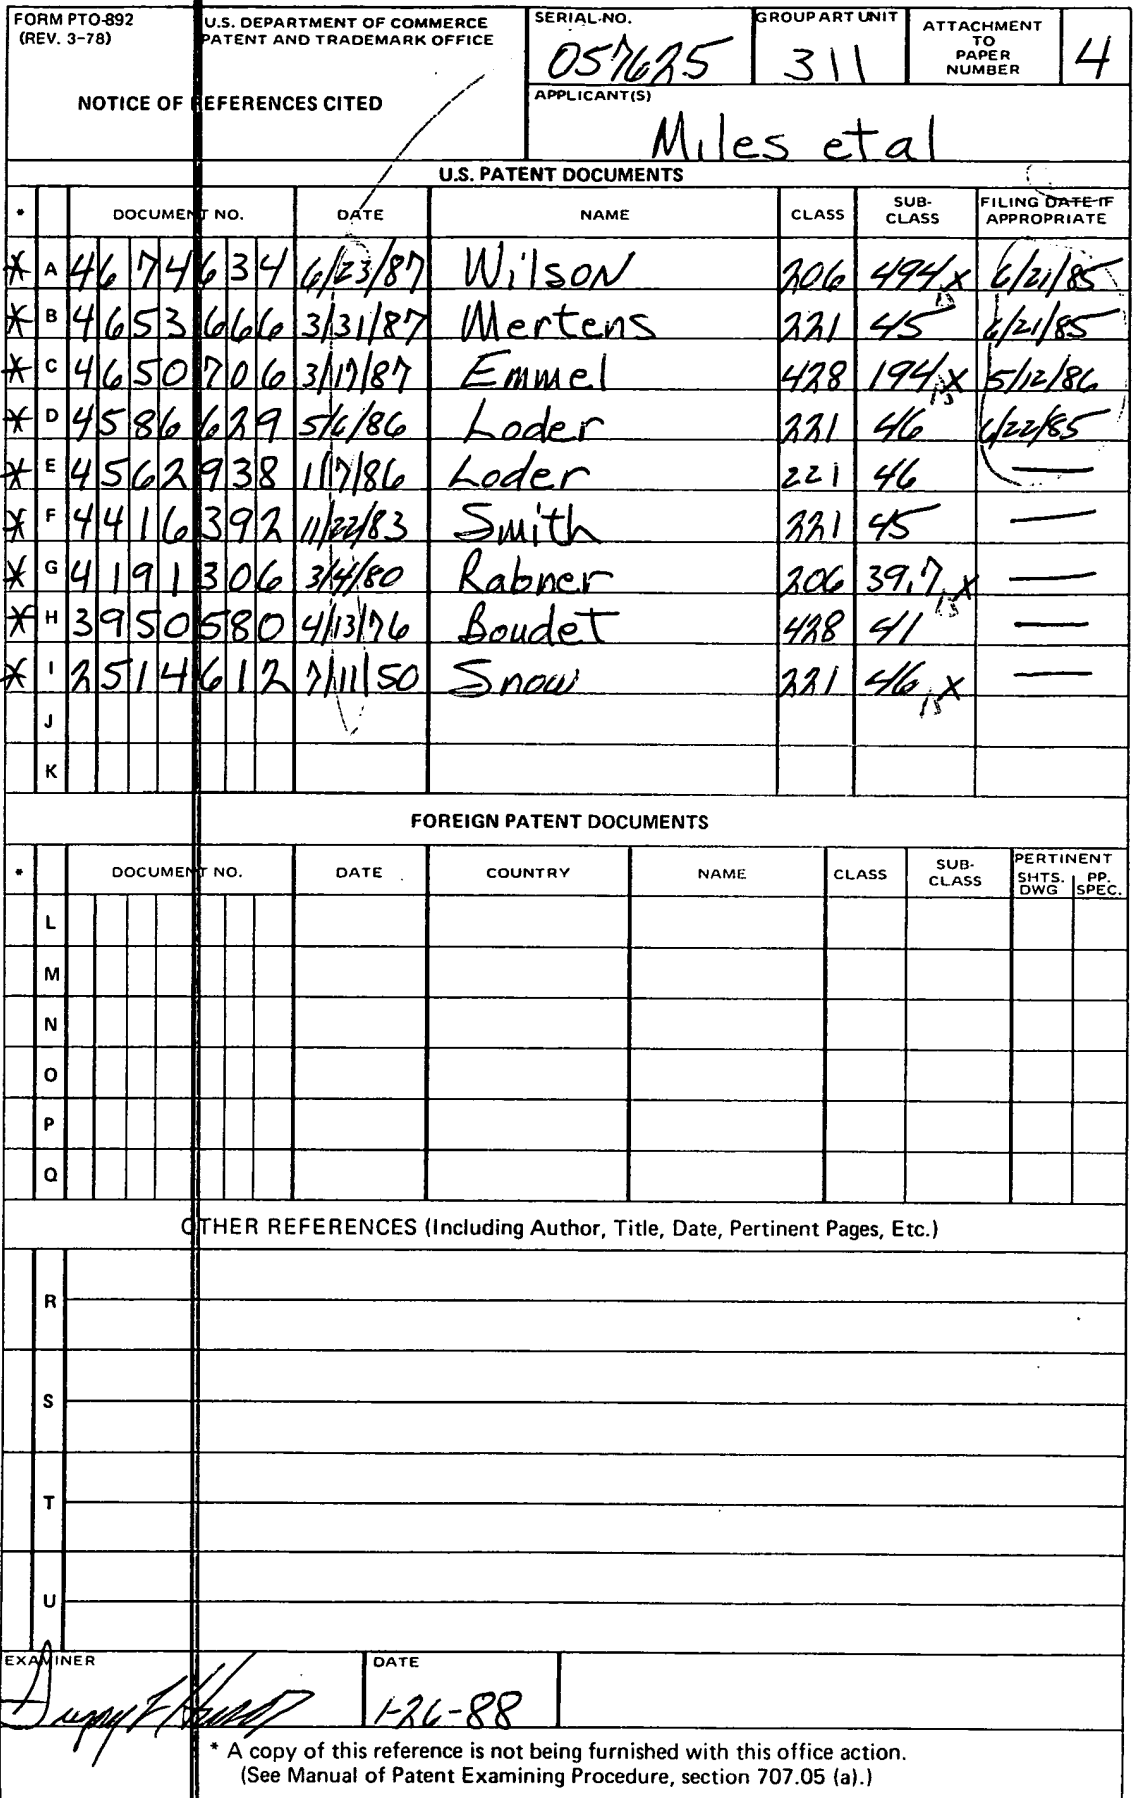 FORM PTO-892 U.S. DEPARTMENT OF COMMERCE
(REV. 3-78) PATENT AND TRADEMARK OFFICE
NOTICE OF REFERENCES CITED
SERIAL NO. GROUP ART UNIT ATTACHMENT TO PAPER NUMBER
057625 311 4
APPLICANT(S)
Miles et al
U.S. PATENT DOCUMENTS
* DOCUMENT NO. DATE NAME CLASS SUB-CLASS FILING DATE IF APPROPRIATE
* A 4674634 6/23/87 Wilson 206 494 X 6/21/85
* B 4653666 3/31/87 Mertens 221 45 6/21/85
* C 4650706 3/17/87 Emmel 428 194 X 5/12/86
* D 4586629 5/6/86 Loder 221 46 6/22/85
* E 4562938 1/7/86 Loder 221 46 —
* F 4416392 11/22/83 Smith 221 45 —
* G 4191306 3/4/80 Rabner 206 39.7 X —
* H 3950580 4/13/76 Boudet 428 41 —
* I 2514612 7/11/50 Snow 221 46 X —
J
K
FOREIGN PATENT DOCUMENTS
* DOCUMENT NO. DATE COUNTRY NAME CLASS SUB-CLASS PERTINENT SHTS. DWG PP. SPEC.
L
M
N
O
P
Q
OTHER REFERENCES (Including Author, Title, Date, Pertinent Pages, Etc.)
R
S
T
U
EXAMINER DATE
1-26-88
* A copy of this reference is not being furnished with this office action.
(See Manual of Patent Examining Procedure, section 707.05 (a).)